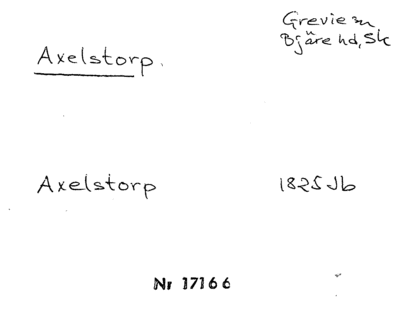 Axelstorp.
Grevie sn
Bjäre hd, Sk
Axelstorp
1825 Jb
Nr 17166